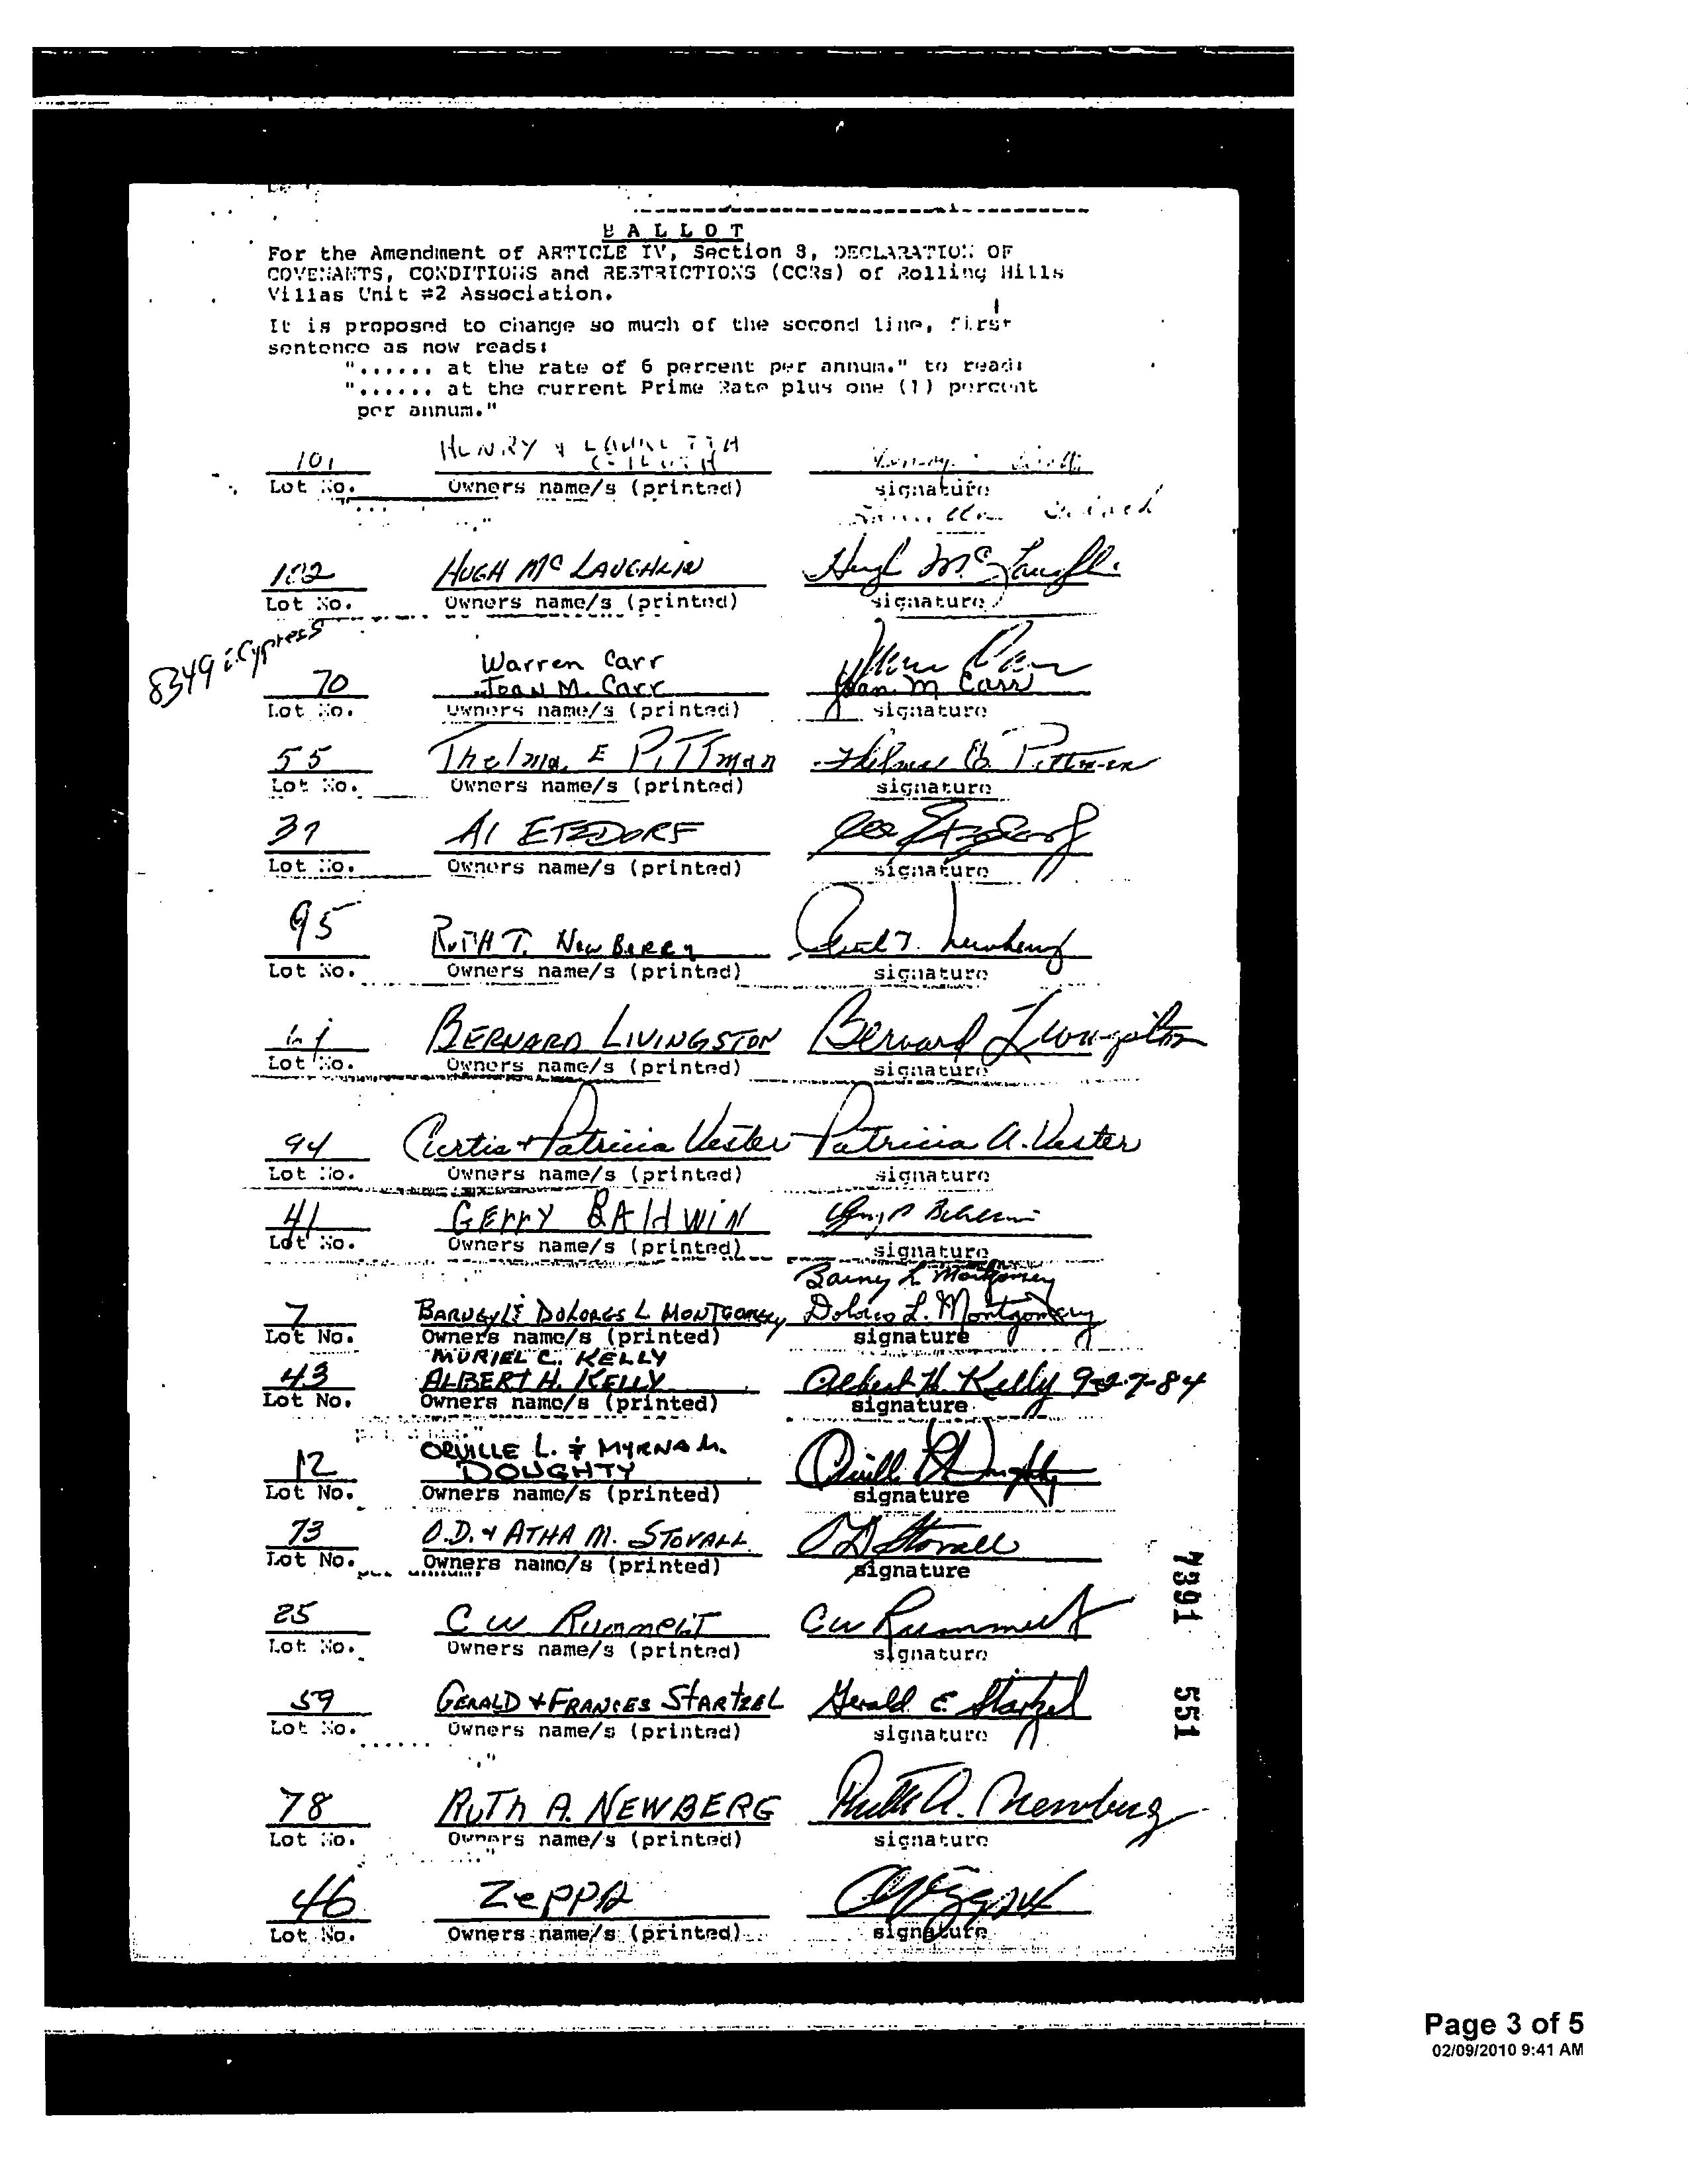 BALLOT
For the Amendment of ARTICLE IV, Section 8, DECLARATION OF
COVENANTS, CONDITIONS and RESTRICTIONS (CCRs) of Rolling Hills
Villas Unit #2 Association.
It is proposed to change so much of the second line, first
sentence as now reads:
"...... at the rate of 6 percent per annum." to read:
"...... at the current Prime Rate plus one (1) percent
per annum."
101 HENRY &
Lot No. Owners name/s (printed) signature
102 HUGH McLAUGHLIN Hugh McLaughlin
Lot No. Owners name/s (printed) signature
8349 E. Cypress
Warren Carr Warren Carr
70 Joan M. Carr Joan M Carr
Lot No. Owners name/s (printed) signature
55 Thelma E PITTman Thelma E. Pittman
Lot No. Owners name/s (printed) signature
37 Al ETZDORF
Lot No. Owners name/s (printed) signature
95 RUTH T. NewBerry Ruth T. Newberry
Lot No. Owners name/s (printed) signature
BERNARD LIVINGSTON Bernard Livingston
Lot No. Owners name/s (printed) signature
94 Curtis + Patricia Vester Patricia A. Vester
Lot No. Owners name/s (printed) signature
41 GErrY BAldWiN
Lot No. Owners name/s (printed) signature
Barney L Montgomery
7 BARNEY L & DOLORES L MONTGOMERY Dolores L. Montgomery
Lot No. Owners name/s (printed) signature
MURIEL C. KELLY
43 ALBERT H. KELLY Albert H. Kelly 9-27-84
Lot No. Owners name/s (printed) signature
ORVILLE L. & MYRNA M.
12 DOUGHTY Orville L Doughty
Lot No. Owners name/s (printed) signature
73 O.D. & ATHA M. STOVALL OD Stovall
Lot No. Owners name/s (printed) signature
25 CW RummelT CW Rummelt
Lot No. Owners name/s (printed) signature
59 GERALD & FRANCES STARTZEL Gerald E. Startzel
Lot No. Owners name/s (printed) signature
78 RUTh A. NEWBERG Ruth A. Newberg
Lot No. Owners name/s (printed) signature
46 ZePPA
Lot No. Owners name/s (printed) signature
7391 551
Page 3 of 5
02/09/2010 9:41 AM